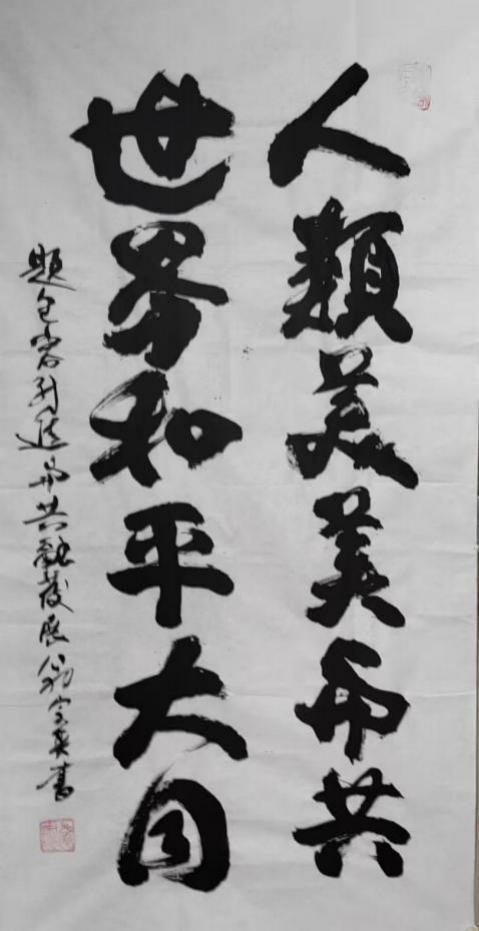 人類美美與共
世界和平大同
題包容引進與共融發展